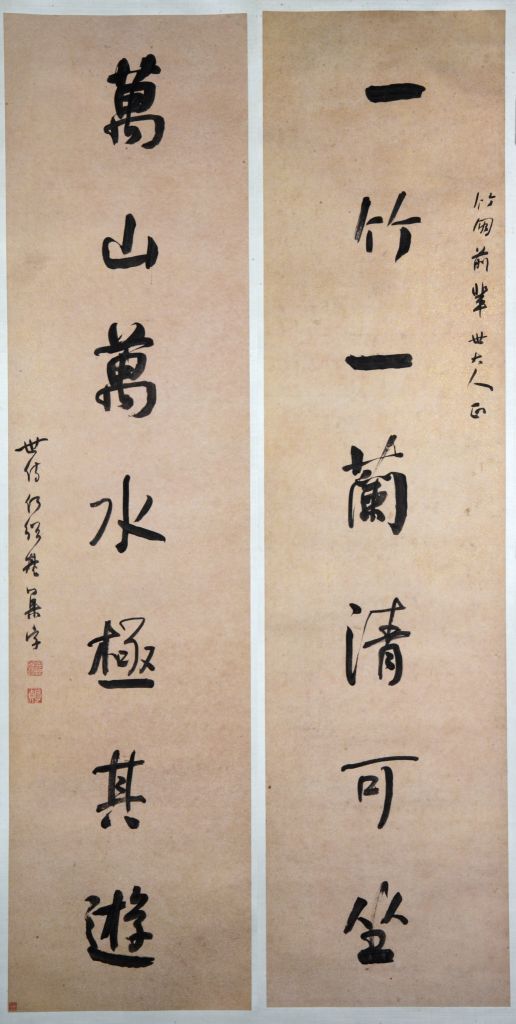 竹閣前輩世大人正
一竹一蘭清可坐
萬山萬水極其遊
世侍何紹基集字